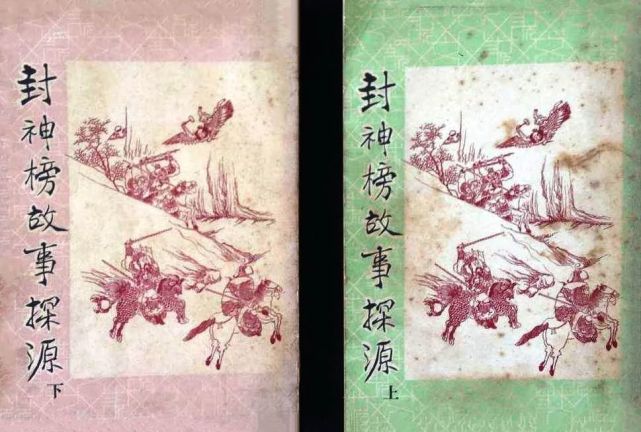 封神榜故事探源
下
封神榜故事探源
上